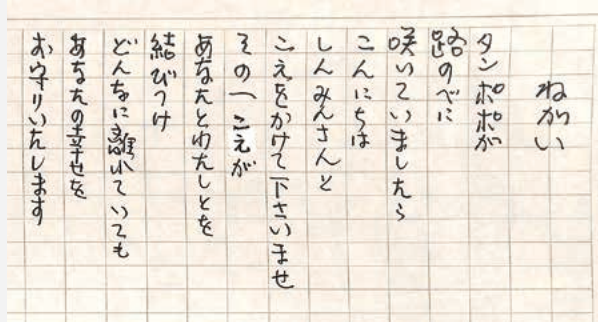 ねがい
タンポポが
路のべに
咲いていましたら
こんにちは
しんみんさんと
こえをかけて下さいませ
その一こえが
あなたとわたしとを
結びつけ
どんなに離れていても
あなたの幸せを
お守りいたします